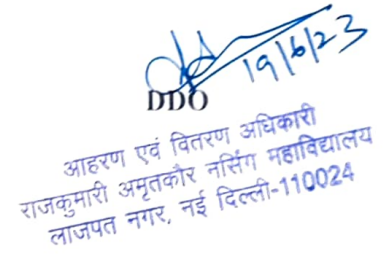 19/6/23
DDO
आहरण एवं वितरण अधिकारी
राजकुमारी अमृतकौर नर्सिंग महाविद्यालय
लाजपत नगर, नई दिल्ली-110024